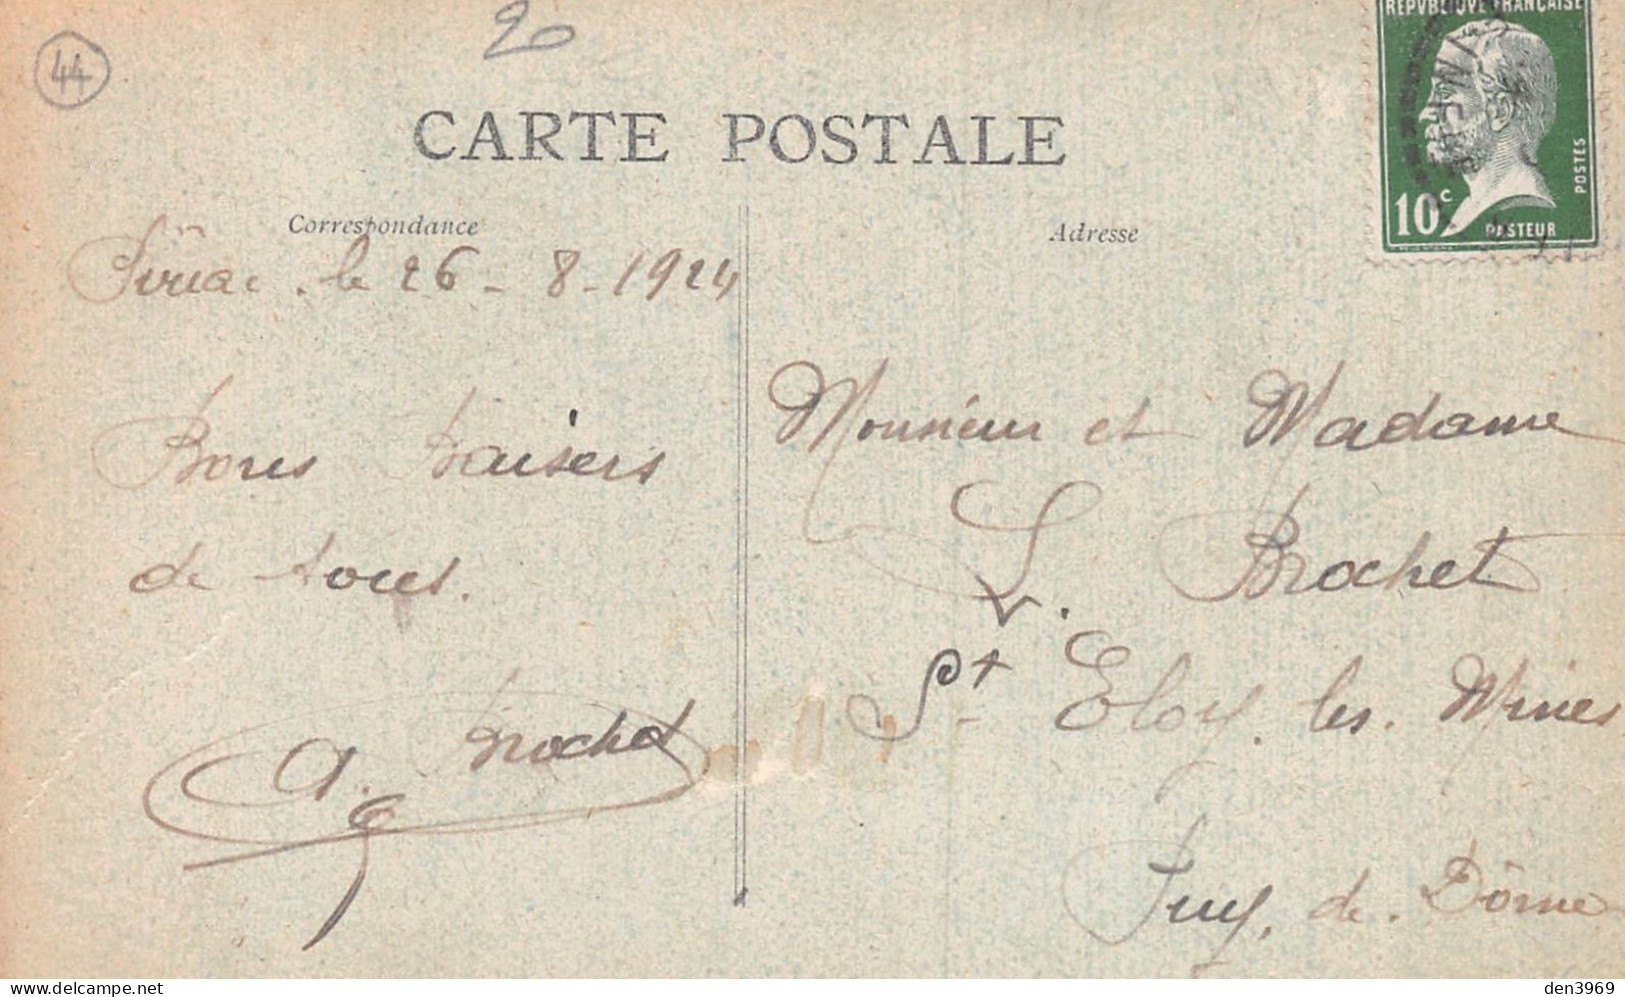 44
20
REPVBLIQVE FRANÇAISE
POSTES
10c
PASTEUR
CARTE POSTALE
Correspondance
Adresse
le 26-8-1924
Bons Baisers
de tous.
A. Brochet
Monsieur et Madame
Brochet
St Eloy. les. Mines
Puy, de. Dôme
den3969